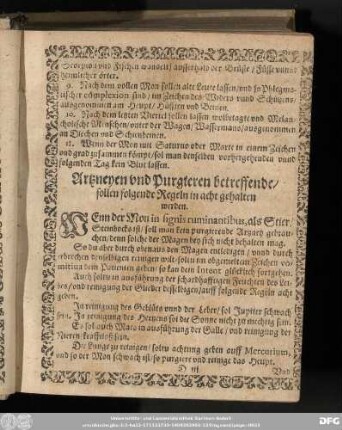 Scorpion vnd Fischen wandelt/ aussertzaln der Brüste / Füsse vnnd
heimlicher örter.
9. Nach dem vollen Mon sollen alte Leute lassen/ vnd so Phlegma-
tischer complexion sind/ im Zeichen des Widers vnnd Schützens/
ausgenommen am Heupt/ Hüfften vnd Beinen.
10. Nach dem letzten Viertel sollen lassen wolbetagte vnd Melan-
cholische Menschen/ vnter der Wagen/ Wassermans/ ausgenommen
an Diechen vnd Schienbeinen.
11. Wenn der Mon mit Saturno oder Marte in einem Zeichen
vnd grad zusammen kömpt/ sol man denselben vorhergehenden vnnd
folgenden Tag kein Blut lassen.
Artzneyen vnd Purgieren betreffende/
sollen folgende Regeln in acht gehalten
werden.
WEnn der Mon in signis ruminantibus, als Stier/
Steinbock ist/ soll man kein purgierende Artzney gebrau-
chen/ denn solche der Magen bey sich nicht behalten mag.
So du aber durch oben aus den Magen entledigen / vnnd durch
erbrechen denselbigen reinigen wilt/ sollen
vomitiva dein Patienten geben/ so kan dein Intent glücklich fortgehen.
Auch sollen in ausführung der schadhafftigen Feuchten des Lei-
bes/ oder reinigung der Glieder desselbigen/ auff folgende Regeln acht
geben.
In reinigung des Geblüts vnnd der Leber/ sol Jupiter schwach
seyn. In reinigung des Hertzens sol die Sonne nicht zu mechtig sein.
Es sol auch Mars in ausführung der Galle/ vnd reinigung der
Nieren krafftlos sein.
Die Lunge zu reinigen/ soltu achtung geben auff Mercurium,
vnd so der Mon schwach ist/ so purgiere vnd reinige das Heupt.
D iij
Vnd